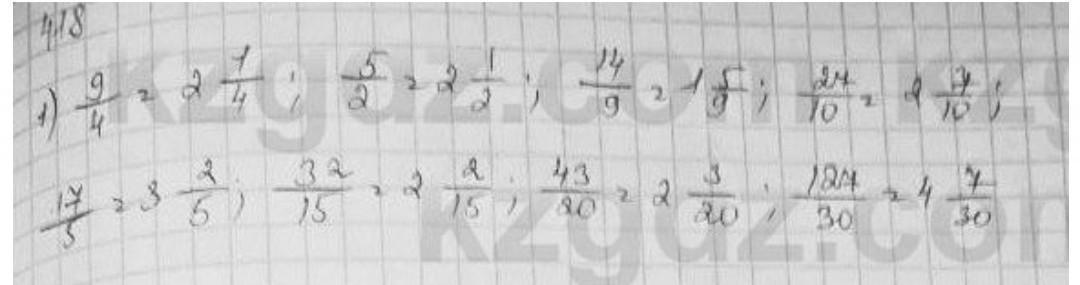 418
1) 9/4 = 2 1/4; 5/2 = 2 1/2; 14/9 = 1 5/9; 27/10 = 2 7/10;
17/5 = 3 2/5; 32/15 = 2 2/15; 43/20 = 2 3/20; 127/30 = 4 7/30
kzgdz.com kzg
kzgdz.com